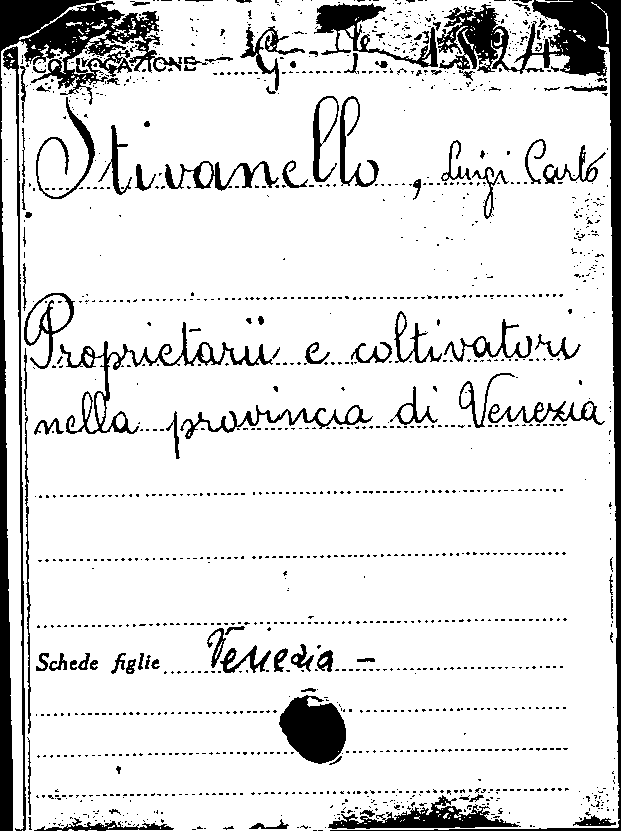 COLLOCAZIONE G. F. 1824
Stivanello, Luigi Carlo
Proprietarii e coltivatori
nella provincia di Venezia
Schede figlie Venezia -